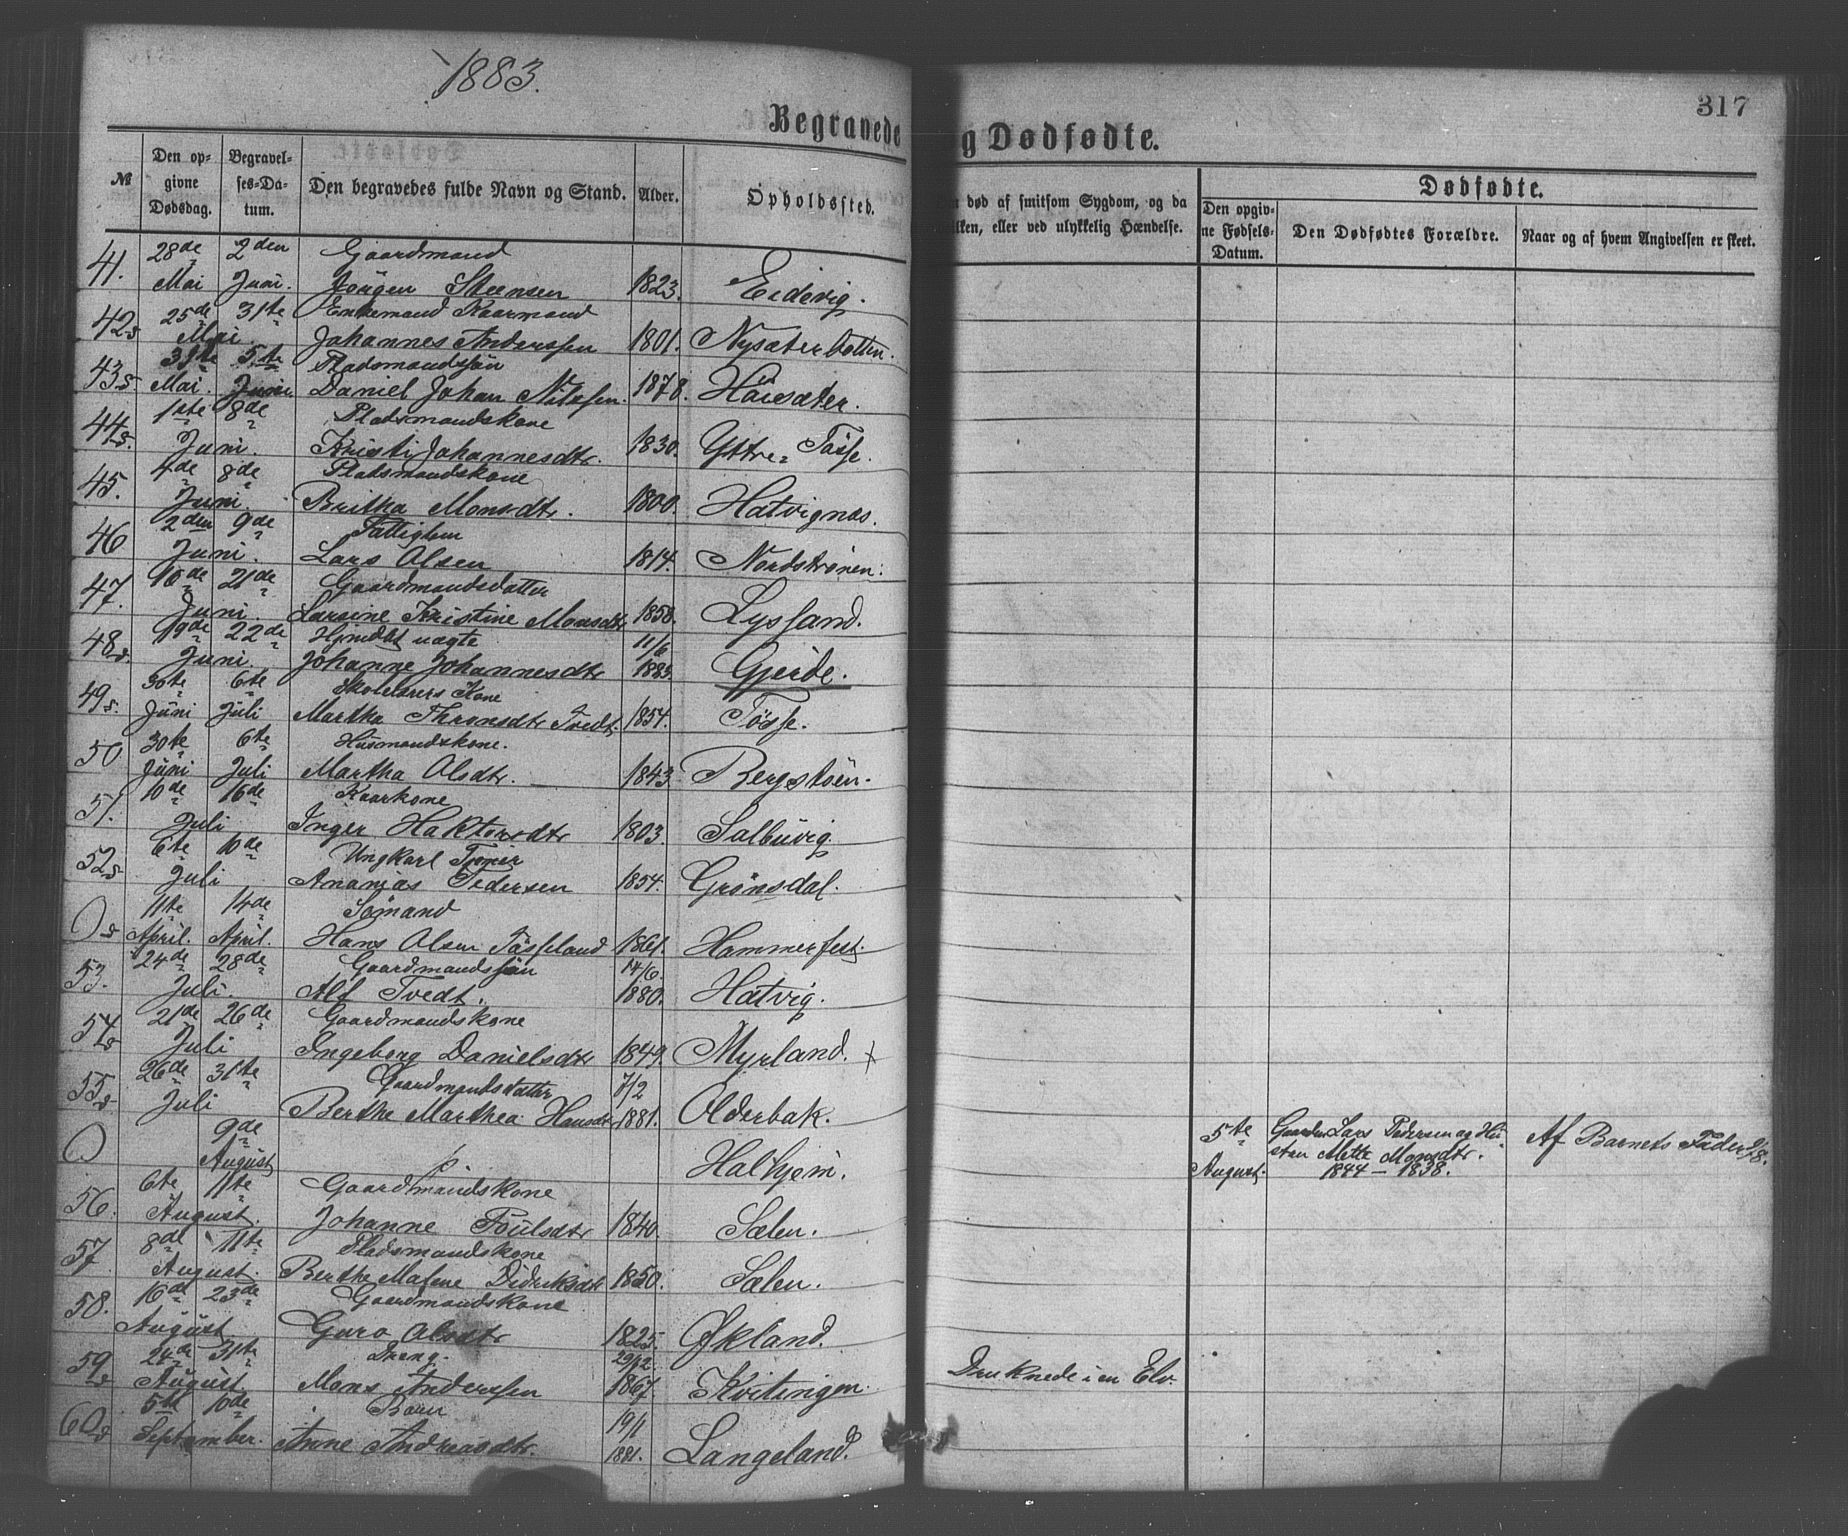 1883.
317
Begravede
g Dødfødte.
№
Den op-
givne
Dødsdag.
Begravel-
ses-Da-
tum.
Den begravedes fulde Navn og Stand.
Alder.
Opholdssted.
død af smitsom Sygdom, og da
ilken, eller ved ulykkelig Hændelse.
Dødfødte.
Den opgiv-
ne Fødsels-
Datum.
Den Dødfødtes Forældre.
Naar og af hvem Angivelsen er skeet.
41. 28de 2den Gaardmand
Mai Juni. Jörgen Steensen 1823. Eidevig.
42 s 25de 31te Enkemand Kaarmand
Mai. Johannes Anderssen 1801. Nysæterbotten.
43 s. 31te 5te Pladsmandssön
Mai. Juni. Daniel Johan Nilssen. 1878. Höisæter.
44 s. 1ste 8de Pladsmandskone
Juni. Kristi Johannesdtr. 1830. Yttre Tösse.
45. 4de 8de Pladsmandskone
Juni. Britha Monsdtr. 1800. Hatvignæs.
46 2den 9de Fattiglem
Juni. Lars Olsen 1814. Nordströnen.
47. 16de 21de Gaardmandsdatter
Juni. Larsine Kristine Monsdtr 1858. Lysfand.
48 s. 19de 22de uægte 11/6
Juni. Johanne Johannesdtr 1883. Gjerde.
49 s. 30te 6te Skolelærers Kone
Juni Juli Martha Thronsdtr Tvedt 1854. Tösse.
50 30te 6te Husmandskone.
Juni Juli Martha Olsdtr. 1843 Bergstöen.
51. 10de 16de Kaarkone
Juli Inger Haktorsdtr 1803. Salbuvig.
52 s 6te 10de Ungkarl
Juli Ananias Pedersen 1854. Grönsdal.
0 s 11te 14de Sömand
April. April. Hans Olsen Tösseland 1861. Hammerfest.
53. 24de 28de Gaardmandssön 14/6.
Juli. Alf Tvedt. 1880. Hatvig.
54 s 21de 26de Gaardmandskone
Juli Ingeborg Danielsdtr 1849. Myrland. +
55 s 26de 31te Gaardmandsdatter 7/2
Juli Berthe Marthea Hansdtr 1881. Olderbak.
0 9de
August Halhjem.
5te Gaardm Lars Pedersen og Hu-
August stru Mette Monsdtr.
1844 – 1838.
Af Barnets Fader 9/8.
56. 6te 11te Gaardmandskone
August. Johanne Poulsdtr 1840. Sælen.
57. 8de 11te Pladsmandskone
August. Berthe Malene Didriksdtr 1850. Sælen.
58. 16de 23de Gaardmandskone
August Guro Olsdtr 1825. Økland.
59 s 24de 31te Dreng. 29/12.
August Mons Anderssen 1867 Kvitingen. Druknede i en Elv.
60 s 5te 10de Barn 19/1
September. Anne Andreasdtr. 1881. Langeland.